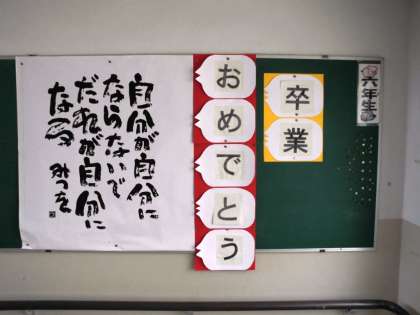 六年生
卒業
おめでとう
自分が自分に
ならないで
だれが自分に
なる
みつを